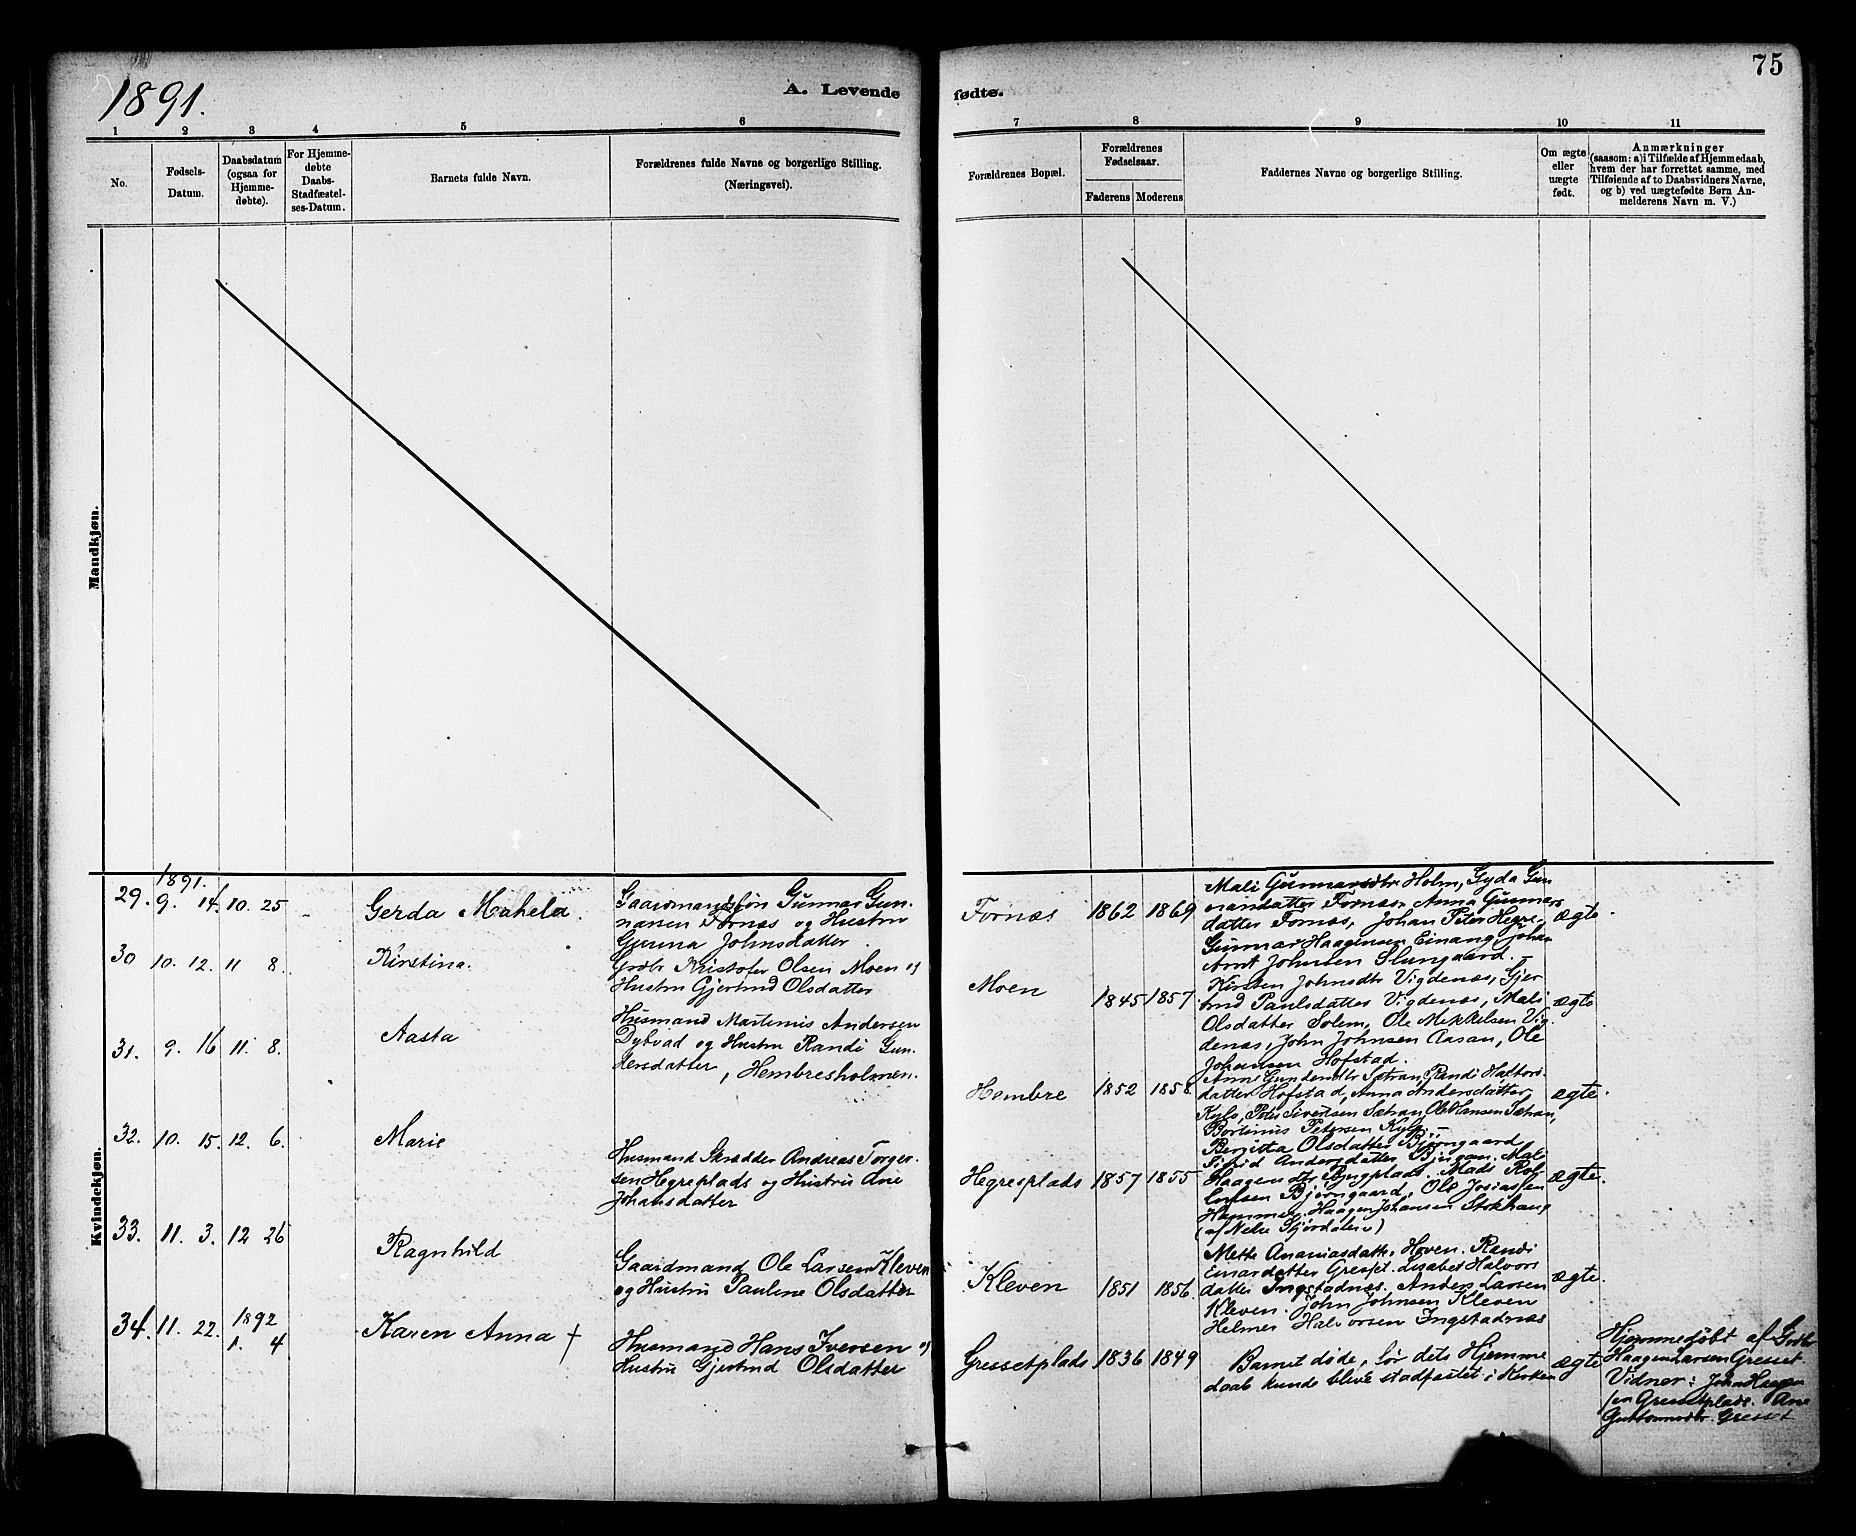 1891.
A. Levende
fødte.
75
1 2 3 4 5 6 7 8 9 10 11
No.
Fødsels-
Datum.
Daabsdatum
(ogsaa for
Hjemme-
døbte).
For Hjemme-
døbte
Daabs-
Stadfæstel-
ses-Datum.
Barnets fulde Navn.
Forældrenes fulde Navne og borgerlige Stilling.
(Næringsvei).
Forældrenes Bopæl.
Forældrenes
Fødselsaar.
Faderens
Moderens
Faddernes Navne og borgerlige Stilling.
Om ægte
eller
uægte
født.
Anmærkninger
(saasom: a) i Tilfælde af Hjemmedaab,
hvem der har forrettet samme, med
Tilføiende af to Daabsvidners Navne,
og b) ved uægtefødte Børn An-
melderens Navn m. V.)
Mandkjøn.
Kvindekjøn.
1891.
29. 9. 14. 10. 25 - Gerda Mahela.
Gaardmandssøn Gunnar Gun-
narsen Fornes og Hustru
Gurina Johnsdatter.
Fornæs 1862 1869
Mali Gunnarsdtr Holm, Gyda Gun
narsdatter Fornæs, Anna Gunnars
datter Fornæs, Johan Peter Hegre,
Gunnar Haagensen Einang, Johan
Arnt Johnsen Slungaard. -
ægte.
30 10. 12. 11 8. Kirstina.
Grdbr Kristofer Olsen Moen og
Hustru Gjertrud Olsdatter
Moen 1845 1857.
Kirsten Johnsdtr Vigdenæs, Gjer
trud Paulsdatter Vigdenæs, Mali
Olsdatter Solem, Ole Mekkelsen Vig
denæs, John Johnsen Aasan, Ole
Johansen Hofstad.
ægte
31. 9. 16 11. 8. Aasta
Husmand Martinus Andersen
Dybvad og Hustru Randi Gun-
dersdatter, Hembresholmen.
Hembre 1852 1858.
Anne Gundersdtr Sætran, Randi Haldors-
datter Hofstad, Anna Andersdatter
Kylo, Peter Sivertsen Sætran, Ole Hansen Sætran,
Bortinus Petersen Kylo -
ægte.
32. 10. 15. 12. 6. Marie
Husmand Skrædder Andreas Torger-
sen Hegreplads og Hustru Ane
Johansdatter
Hegresplads 1857 1855
Bergitta Olsdatter Bjørngaard
Sigrid Andersdatter Bjugan. Mali
Haagensdtr . Mads Rol
Bjørngaard. Ole Josiassen
Hammer. Haagen Johansen Stokhaug
(af Nedre Stjørdalen)
ægte.
33. 11. 3. 12 26 Ragnhild
Gaardmand Ole Larsen Kleven
og Hustru Pauline Olsdatter
Kleven 1851 1856
Mette Ananiasdatter Hoven. Randi
Einarsdatter Gresset. Lisabet Halvors
datter Ingstadnæs. Anders Larsen
Kleven. John Johnsen Kleven
Helmer Halvorsen Ingstadnæs
ægte.
34. 11. 22. 1892
1. 4 Karen Anna †
Husmand Hans Iversen og
Hustru Gjertrud Olsdatter
Gressetplads 1836 1849
Barnet døde, før dets Hjemme
daab kunde blive stadfæstet i Kirken
ægte
Hjemmedøbt af Grdbr
Haagen Larsen Gresset.
Vidner: John Haagen
sen Gressetplads. Ane
Gresset